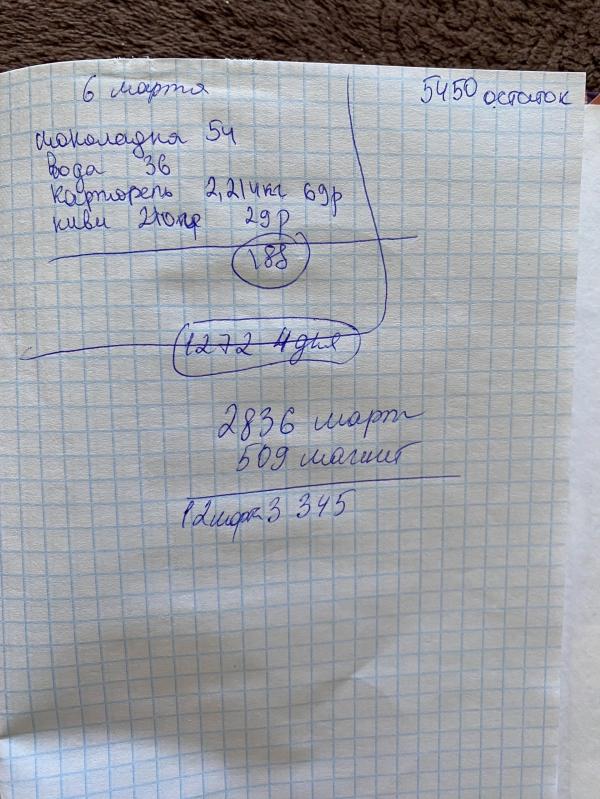 6 марта
5450 остаток
шоколадка 54
вода 36
картофель 2,214кг 69р
киви 29р
188
1272 4 дня
2836 март
509 магнит
12 марта 3 345